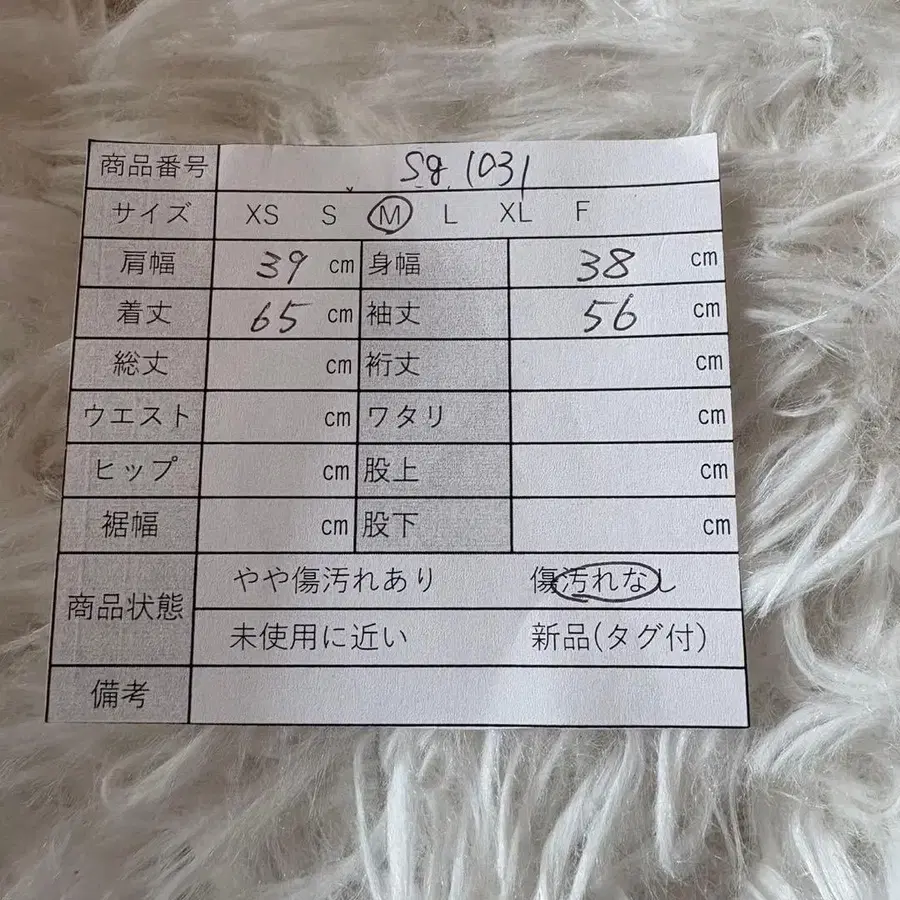 商品番号 Sg 1031
サイズ XS S M L XL F
肩幅 39 cm 身幅 38 cm
着丈 65 cm 袖丈 56 cm
総丈 cm 裄丈 cm
ウエスト cm ワタリ cm
ヒップ cm 股上 cm
裾幅 cm 股下 cm
商品状態 やや傷汚れあり 傷汚れなし
未使用に近い 新品(タグ付)
備考